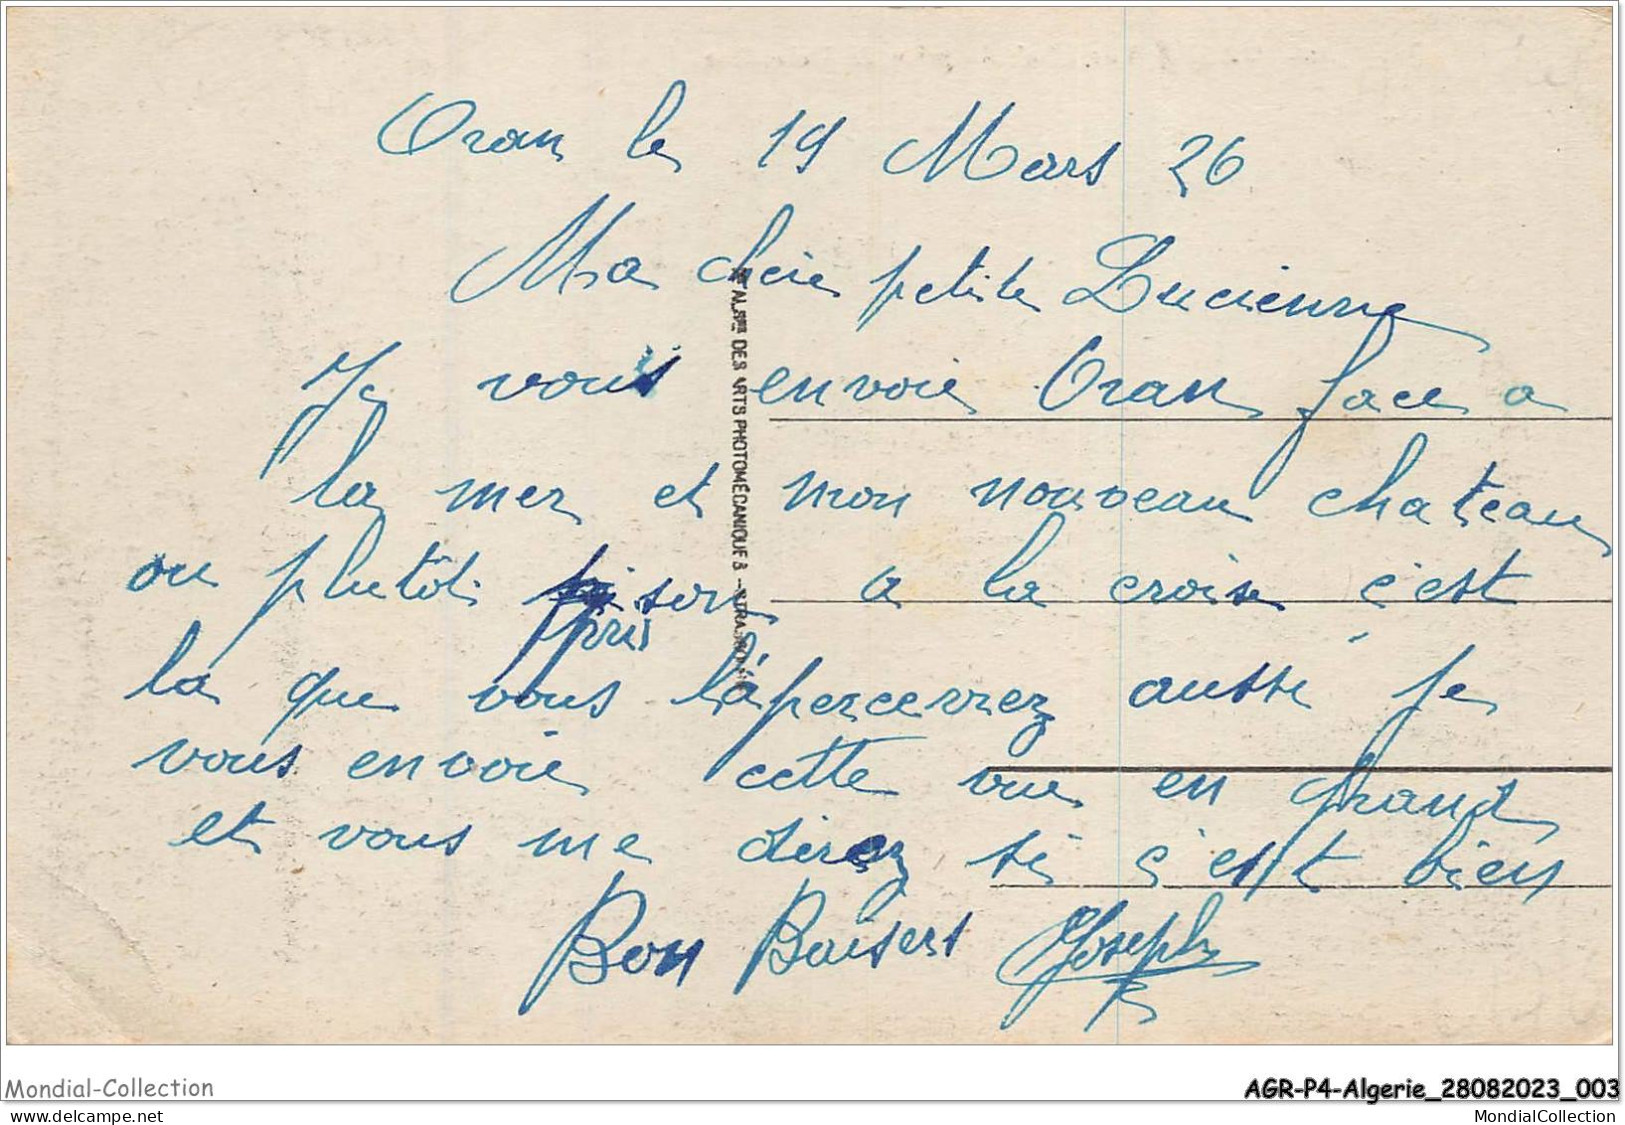 Oran le 19 Mars 26
Ma chère petite Lucienne
Je vous envoie Oran face a
la mer et mon nouveau chateau
ou plutôt prison a la croix c'est
la que vous l'apercevrez aussi je
vous envoie cette vue en grand
et vous me direz si c'est bien
Bon Baisers Joseph
DES ARTS PHOTOMÉCANIQUES - STRASBOURG
Mondial-Collection
AGR-P4-Algerie_28082023_003
www.delcampe.net
MondialCollection